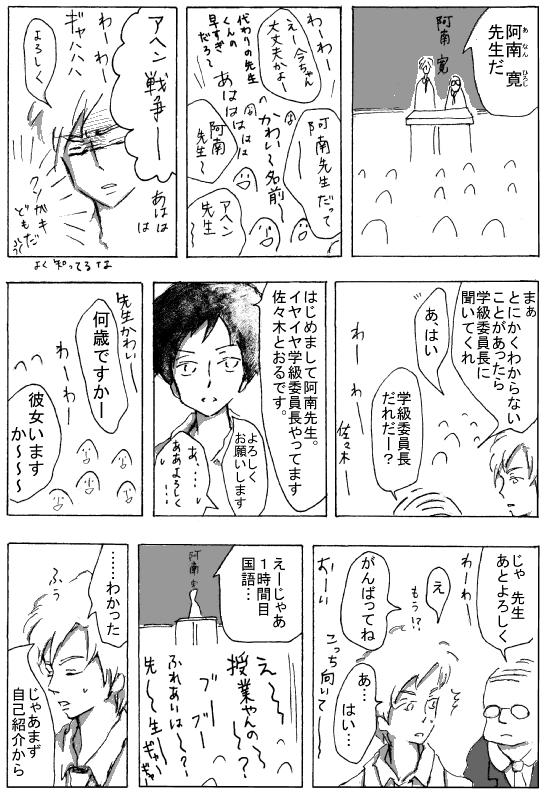 阿南 寛
先生だ
あ なん ひろし
阿南 寛
わーわー
えー今ちゃん
大丈夫かよー
代わりの先生
くんの
早すぎ
だろー
あはははは
かわいー名前ー
阿南先生だって
阿南
先生ー
アヘン
先生
アヘン戦争ー
わーわー
ギャハハハ
よろしく
あはは
は
クソガキ
どもだ
よく知ってるな
まぁ
とにかくわからない
ことがあったら
学級委員長に
聞いてくれ
あ、はい
学級委員長
だれだー?
わーわー
佐々木ー
はじめまして阿南先生。
イヤイヤ学級委員長やってます
佐々木とおるです。
よろしく
お願いします
あ、…
ああよろしく…!
先生かわいー
何歳ですかー
わーわー
彼女います
か~~~
じゃ 先生
あとよろしく
わーわー
え
もう!?
がんばってね
おーい
こっち向いてー
あ…
はい…
えーじゃあ
1時間目
国語…
阿南 寛
え~
授業やんの~?
ブーブー
ふれあいは~~?
先~~生~
……わかった
ふぅ
じゃあまず
自己紹介から